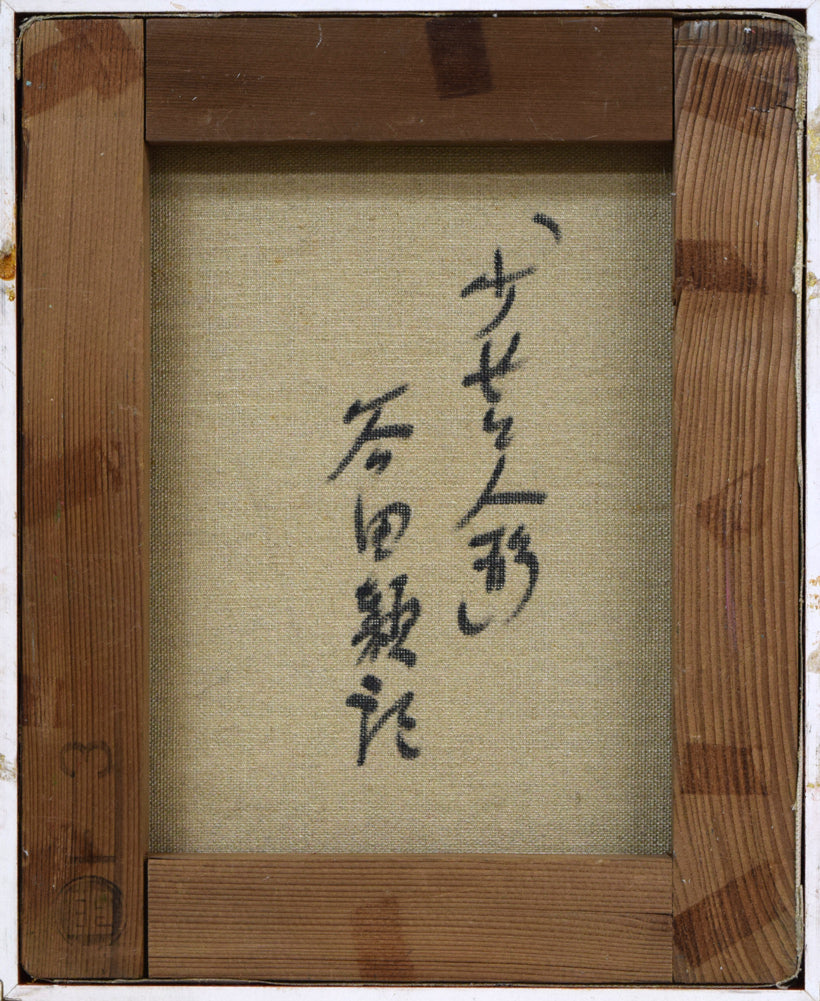 「少女と人形」
谷田 記
F3